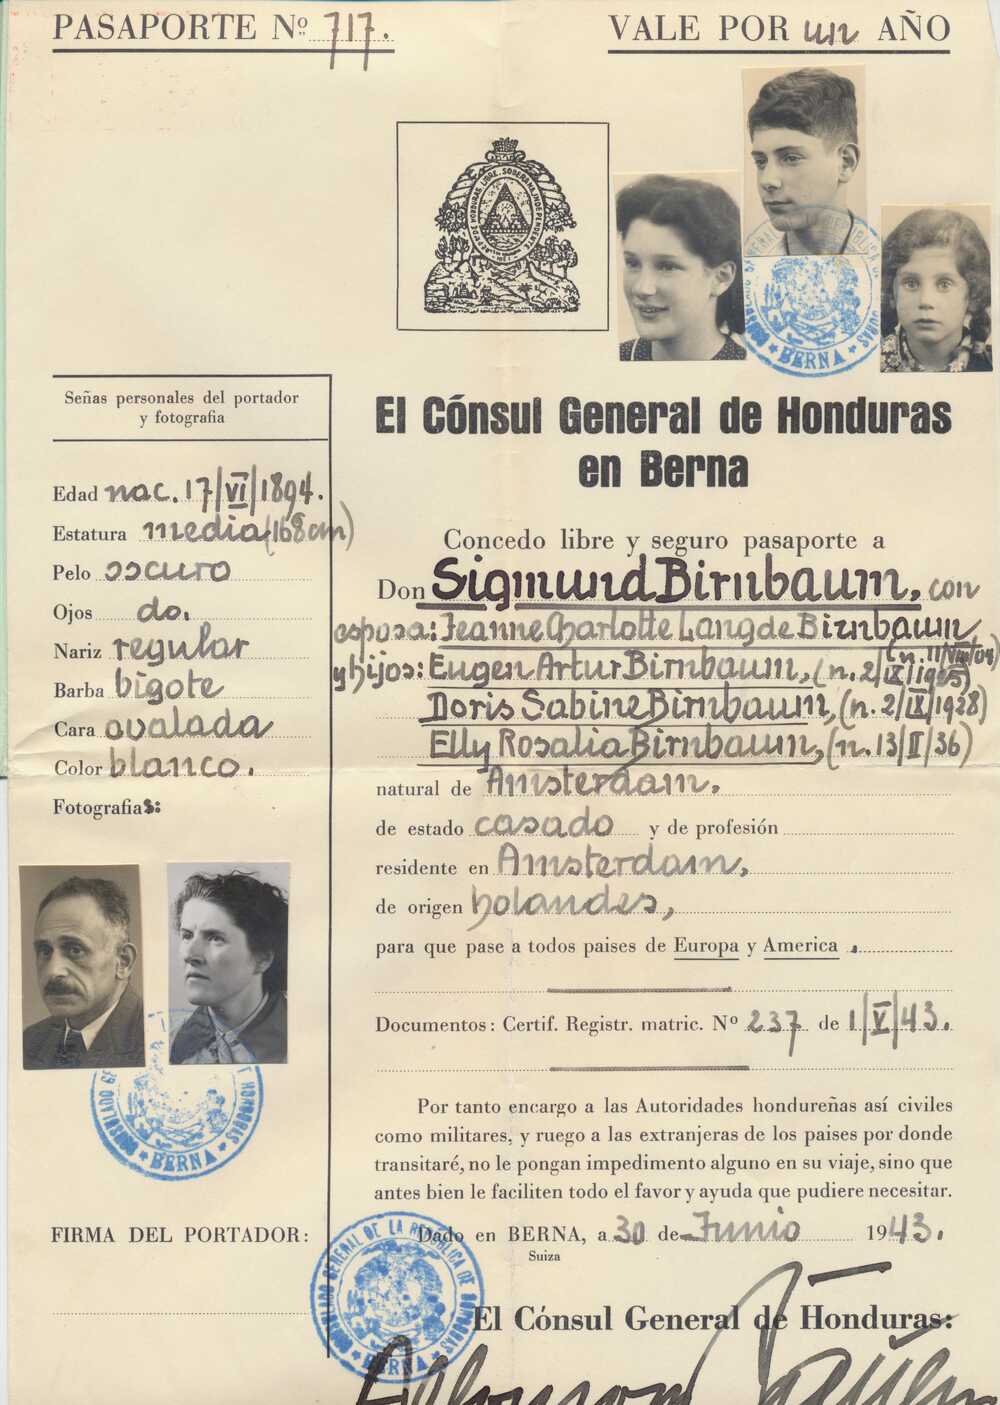 PASAPORTE Nº 717.
VALE POR un AÑO
Señas personales del portador
y fotografia
Edad nac. 17/VI/1894.
Estatura media (168 cm)
Pelo oscuro
Ojos do.
Nariz regular
Barba bigote
Cara ovalada
Color blanco.
Fotografias:
FIRMA DEL PORTADOR:
BERNA
El Cónsul General de Honduras
en Berna
Concedo libre y seguro pasaporte a
Don Sigmund Birnbaum, con
esposa: Jeanne Charlotte Lang de Birnbaum,
(n. 11/VIII/04)
y hijos: Eugen Artur Birnbaum, (n. 2/IX/1925)
Doris Sabine Birnbaum, (n. 2/IX/1928)
Elly Rosalia Birnbaum, (n. 13/II/36)
natural de Amsterdam.
de estado casado y de profesión
residente en Amsterdam,
de origen holandes,
para que pase a todos paises de Europa y America.
Documentos: Certif. Registr. matric. Nº 237 de 1/V/43.
Por tanto encargo a las Autoridades hondureñas así civiles
como militares, y ruego a las extranjeras de los paises por donde
transitaré, no le pongan impedimento alguno en su viaje, sino que
antes bien le faciliten todo el favor y ayuda que pudiere necesitar.
Dado en BERNA, a 30 de Junio 1943.
Suiza
El Cónsul General de Honduras:
CONSULADO GENERAL DE LA REPÚBLICA DE HONDURAS
BERNA